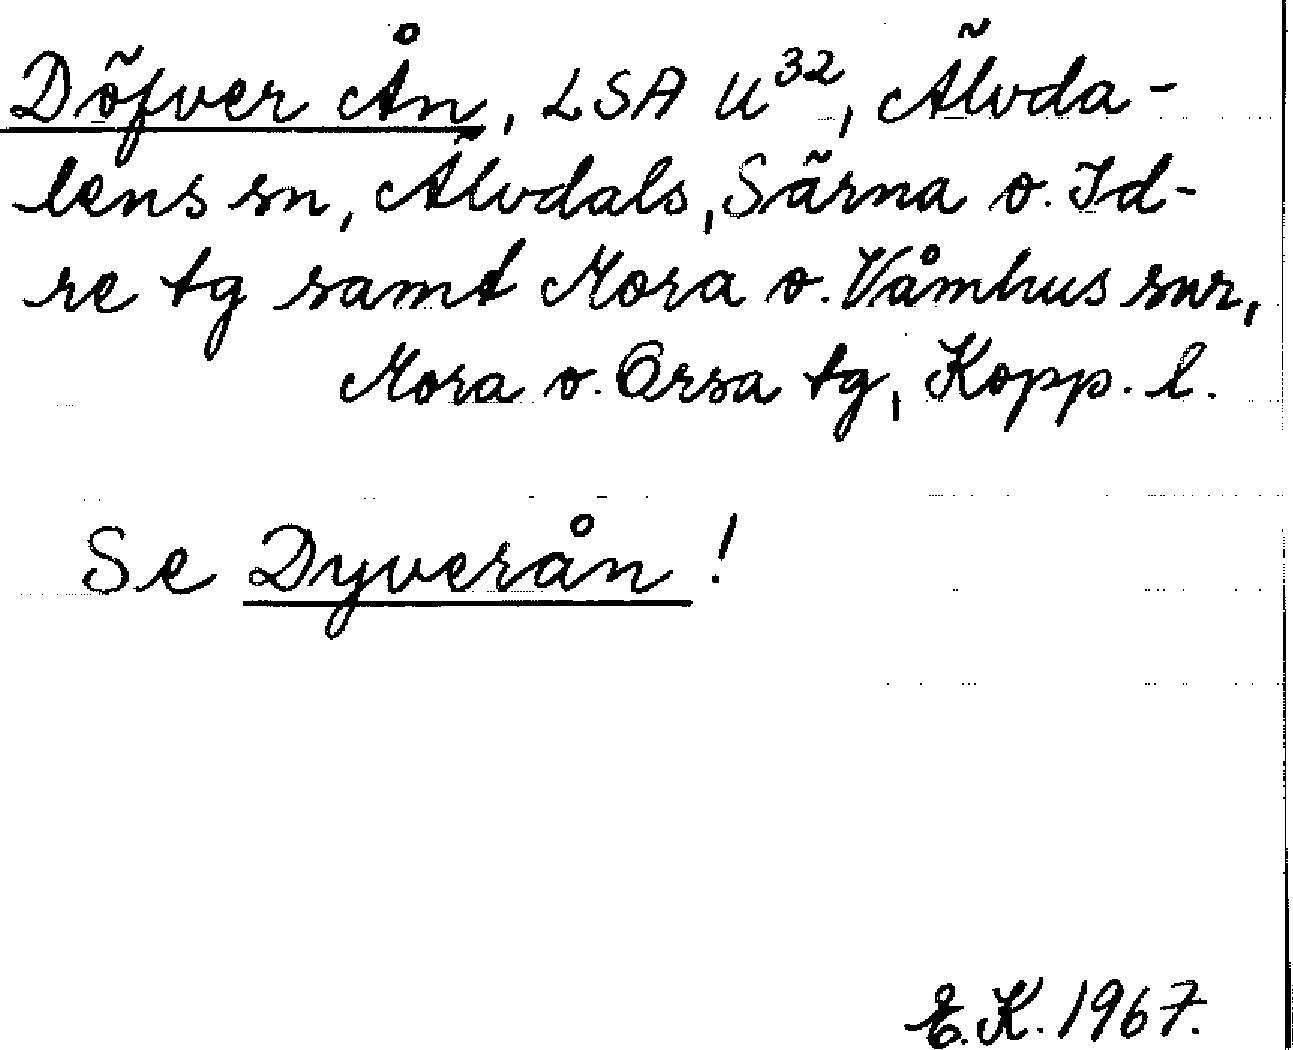 Döfver Ån, LSA U³², Älvda-
lens sn, Älvdals, Särna o. Id-
re tg samt Mora o. Våmhus snr,
Mora o. Orsa tg, Kopp. l.
Se Dyverån!
E.K. 1967.